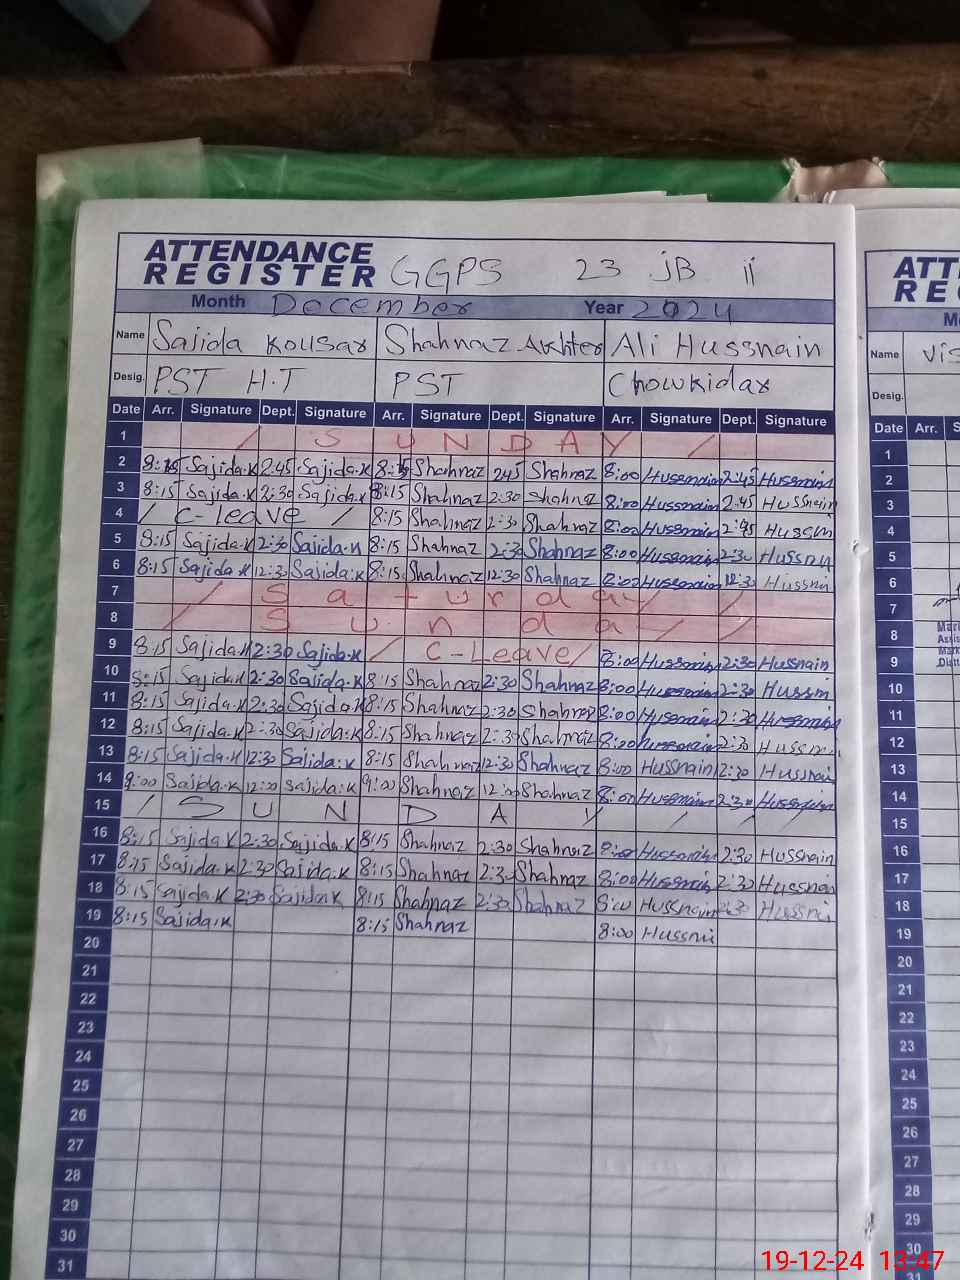 ATTENDANCE REGISTER GGPS 23 JB ii
Month December Year 2024
Name Sajida Kousar Shahnaz Akhter Ali Hussnain
Desig. PST H.T PST Chowkidar
Date Arr. Signature Dept. Signature Arr. Signature Dept. Signature Arr. Signature Dept. Signature
1 / S U N D A Y /
2 8:15 Sajida.K 2:45 Sajida.K 8:15 Shahnaz 2:45 Shahnaz 8:00 Hussnain 2:45 Hussnain
3 8:15 Sajida.K 2:30 Sajida.K 8:15 Shahnaz 2:30 Shahnaz 8:00 Hussnain 2:45 Hussnain
4 / C-Leave / 8:15 Shahnaz 2:30 Shahnaz 8:00 Hussnain 2:45 Hussnn
5 8:15 Sajida.K 2:30 Sajida.K 8:15 Shahnaz 2:30 Shahnaz 8:00 Hussnain 2:30 Hussnn
6 8:15 Sajida.K 12:30 Sajida.K 8:15 Shahnaz 12:30 Shahnaz 8:00 Hussnain 12:30 Hussnai
7 / S a t u r d a y / /
8 / S u n d a / /
9 8:15 Sajida.K 2:30 Sajida.K / C-Leave / 8:00 Hussnain 2:30 Hussnain
10 8:15 Sajida.K 2:30 Sajida.K 8:15 Shahnaz 2:30 Shahnaz 8:00 Hussnain 2:30 Hussnn
11 8:15 Sajida.K 2:30 Sajida.K 8:15 Shahnaz 2:30 Shahnaz 8:00 Hussnain 2:30 Hussnain
12 8:15 Sajida.K 2:30 Sajida.K 8:15 Shahnaz 2:30 Shahnaz 8:00 Hussnain 2:30 Hussnn
13 8:15 Sajida.K 12:30 Sajida.K 8:15 Shahnaz 12:30 Shahnaz 8:00 Hussnain 12:30 Hussnai
14 9:00 Sajida.K 12:00 Sajida.K 9:00 Shahnaz 12:00 Shahnaz 8:00 Hussnain 2:30 Hussnain
15 / S U N D A Y / / /
16 8:15 Sajida.K 2:30 Sajida.K 8:15 Shahnaz 2:30 Shahnaz 8:00 Hussnain 2:30 Hussnain
17 8:15 Sajida.K 2:30 Sajida.K 8:15 Shahnaz 2:30 Shahnaz 8:00 Hussnain 2:30 Hussnain
18 8:15 Sajida.K 2:30 Sajida.K 8:15 Shahnaz 2:30 Shahnaz 8:00 Hussnain 2:30 Hussnai
19 8:15 Sajida.K 8:15 Shahnaz 8:00 Hussnai
20
21
22
23
24
25
26
27
28
29
30
31
Name Vis
Desig.
Date Arr.
1
2
3
4
5
6
7
8
9
10
11
12
13
14
15
16
17
18
19
20
21
22
23
24
25
26
27
28
29
30
31
19-12-24 13:47